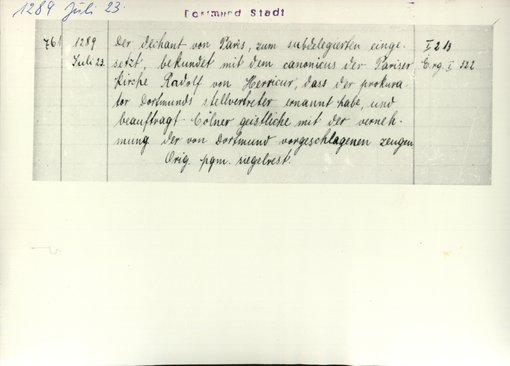 1289 Juli 23.
Dortmund Stadt
761 1289 Der dechant von Paris, zum subdelegierten einge- I 213
Juli 23. setzt, bekundet mit dem canonicus der Pariser Erg. I 122
kirche Radolf von Herricur, dass der prokura-
tor Dortmunds stellvertreter ernannt habe, und
beauftragt Cölner geistliche mit der verneh-
mung der von Dortmund vorgeschlagenen zeugen
Orig. pgm. siegelrest.